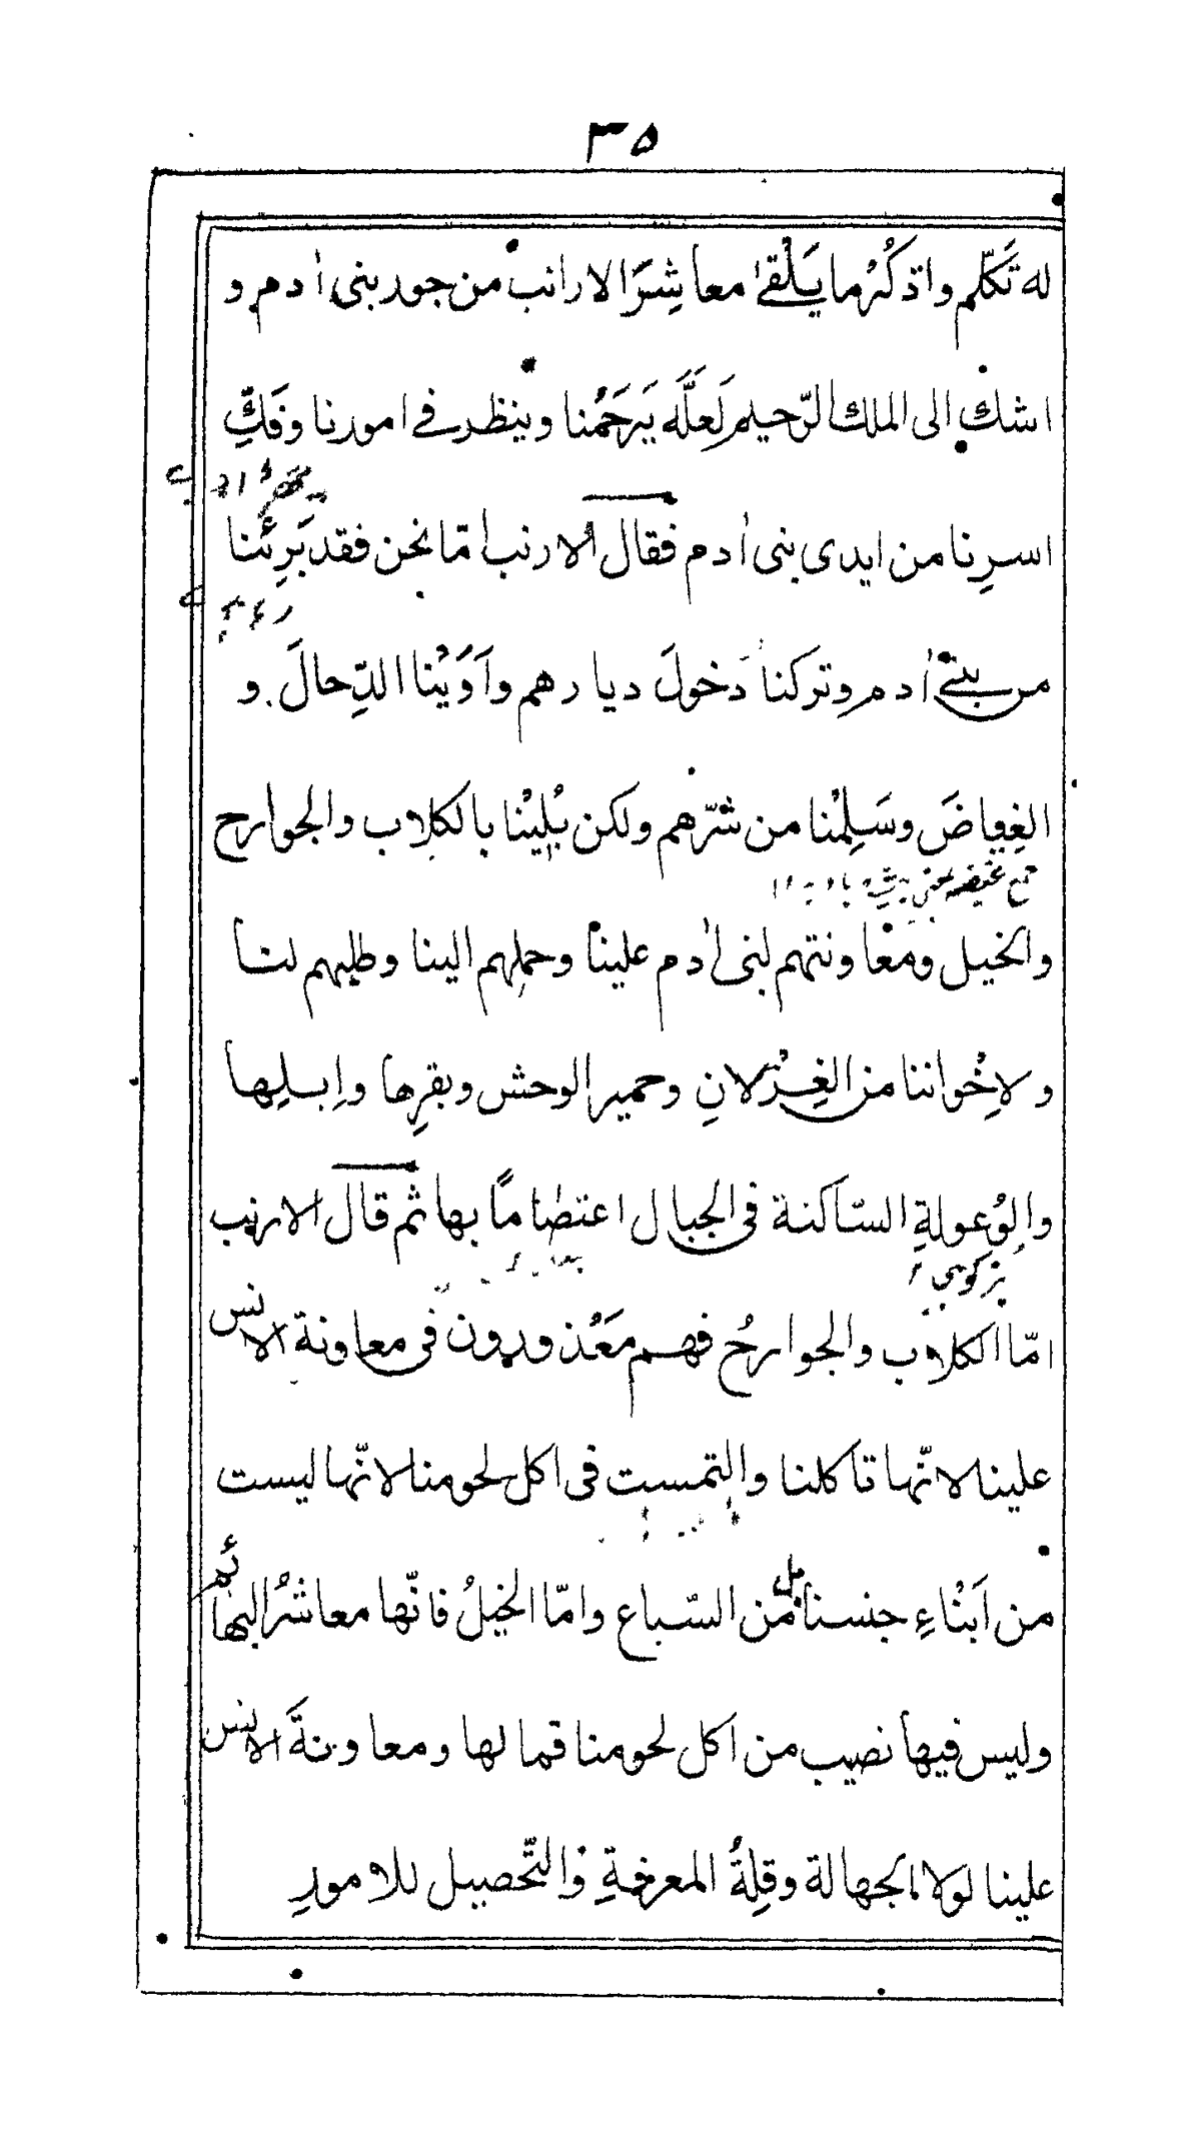 ٣٥
له تَكَلَّم واذكُرْ ما يَلْقىٰ معاشِرَ الارانب من جور بنى اٰدم و
اشك الى الملك الرّحيم لَعَلَّه يَرحَمُنا وينظر فى امورنا وفَكِّ
اسرِنا من ايدى بنى اٰدم فقال الارنب امّا نحن فقد بَرِئنا
من بنى اٰدم وتركنا دخولَ ديارهم وآوَيْنا الدِّحالَ و
الغِياضَ وسَلِمْنا من شرّهم ولكن بُلِيْنا بالكلاب والجوارح
جمع غيضه بمعنى بيشه
والخيل ومعاونتهم لبنى اٰدم علينا وحملهم الينا وطلبهم لنا
ولاِخْواننا من الغِزْلانِ وحمير الوحش وبقرِها واِبلِها
والوُعولةِ السّاكنة فى الجبال اعتصامًا بها ثم قال الارنب
بزكوهى
امّا الكلاب والجوارحُ فهم مَعْذورون فى معاونة الانس
علينا لانّها تاكلنا والتمست فى اكل لحومنا لانّها ليست
من اَبْناءِ جنسنا بل من السّباع وامّا الخيلُ فانّها معاشرُ البهائم
وليس فيها نصيب من اكل لحومنا فما لها ومعاونةَ الانس
علينا لولا الجهالة وقِلةُ المعرفةِ والتّحصيل للامورِ